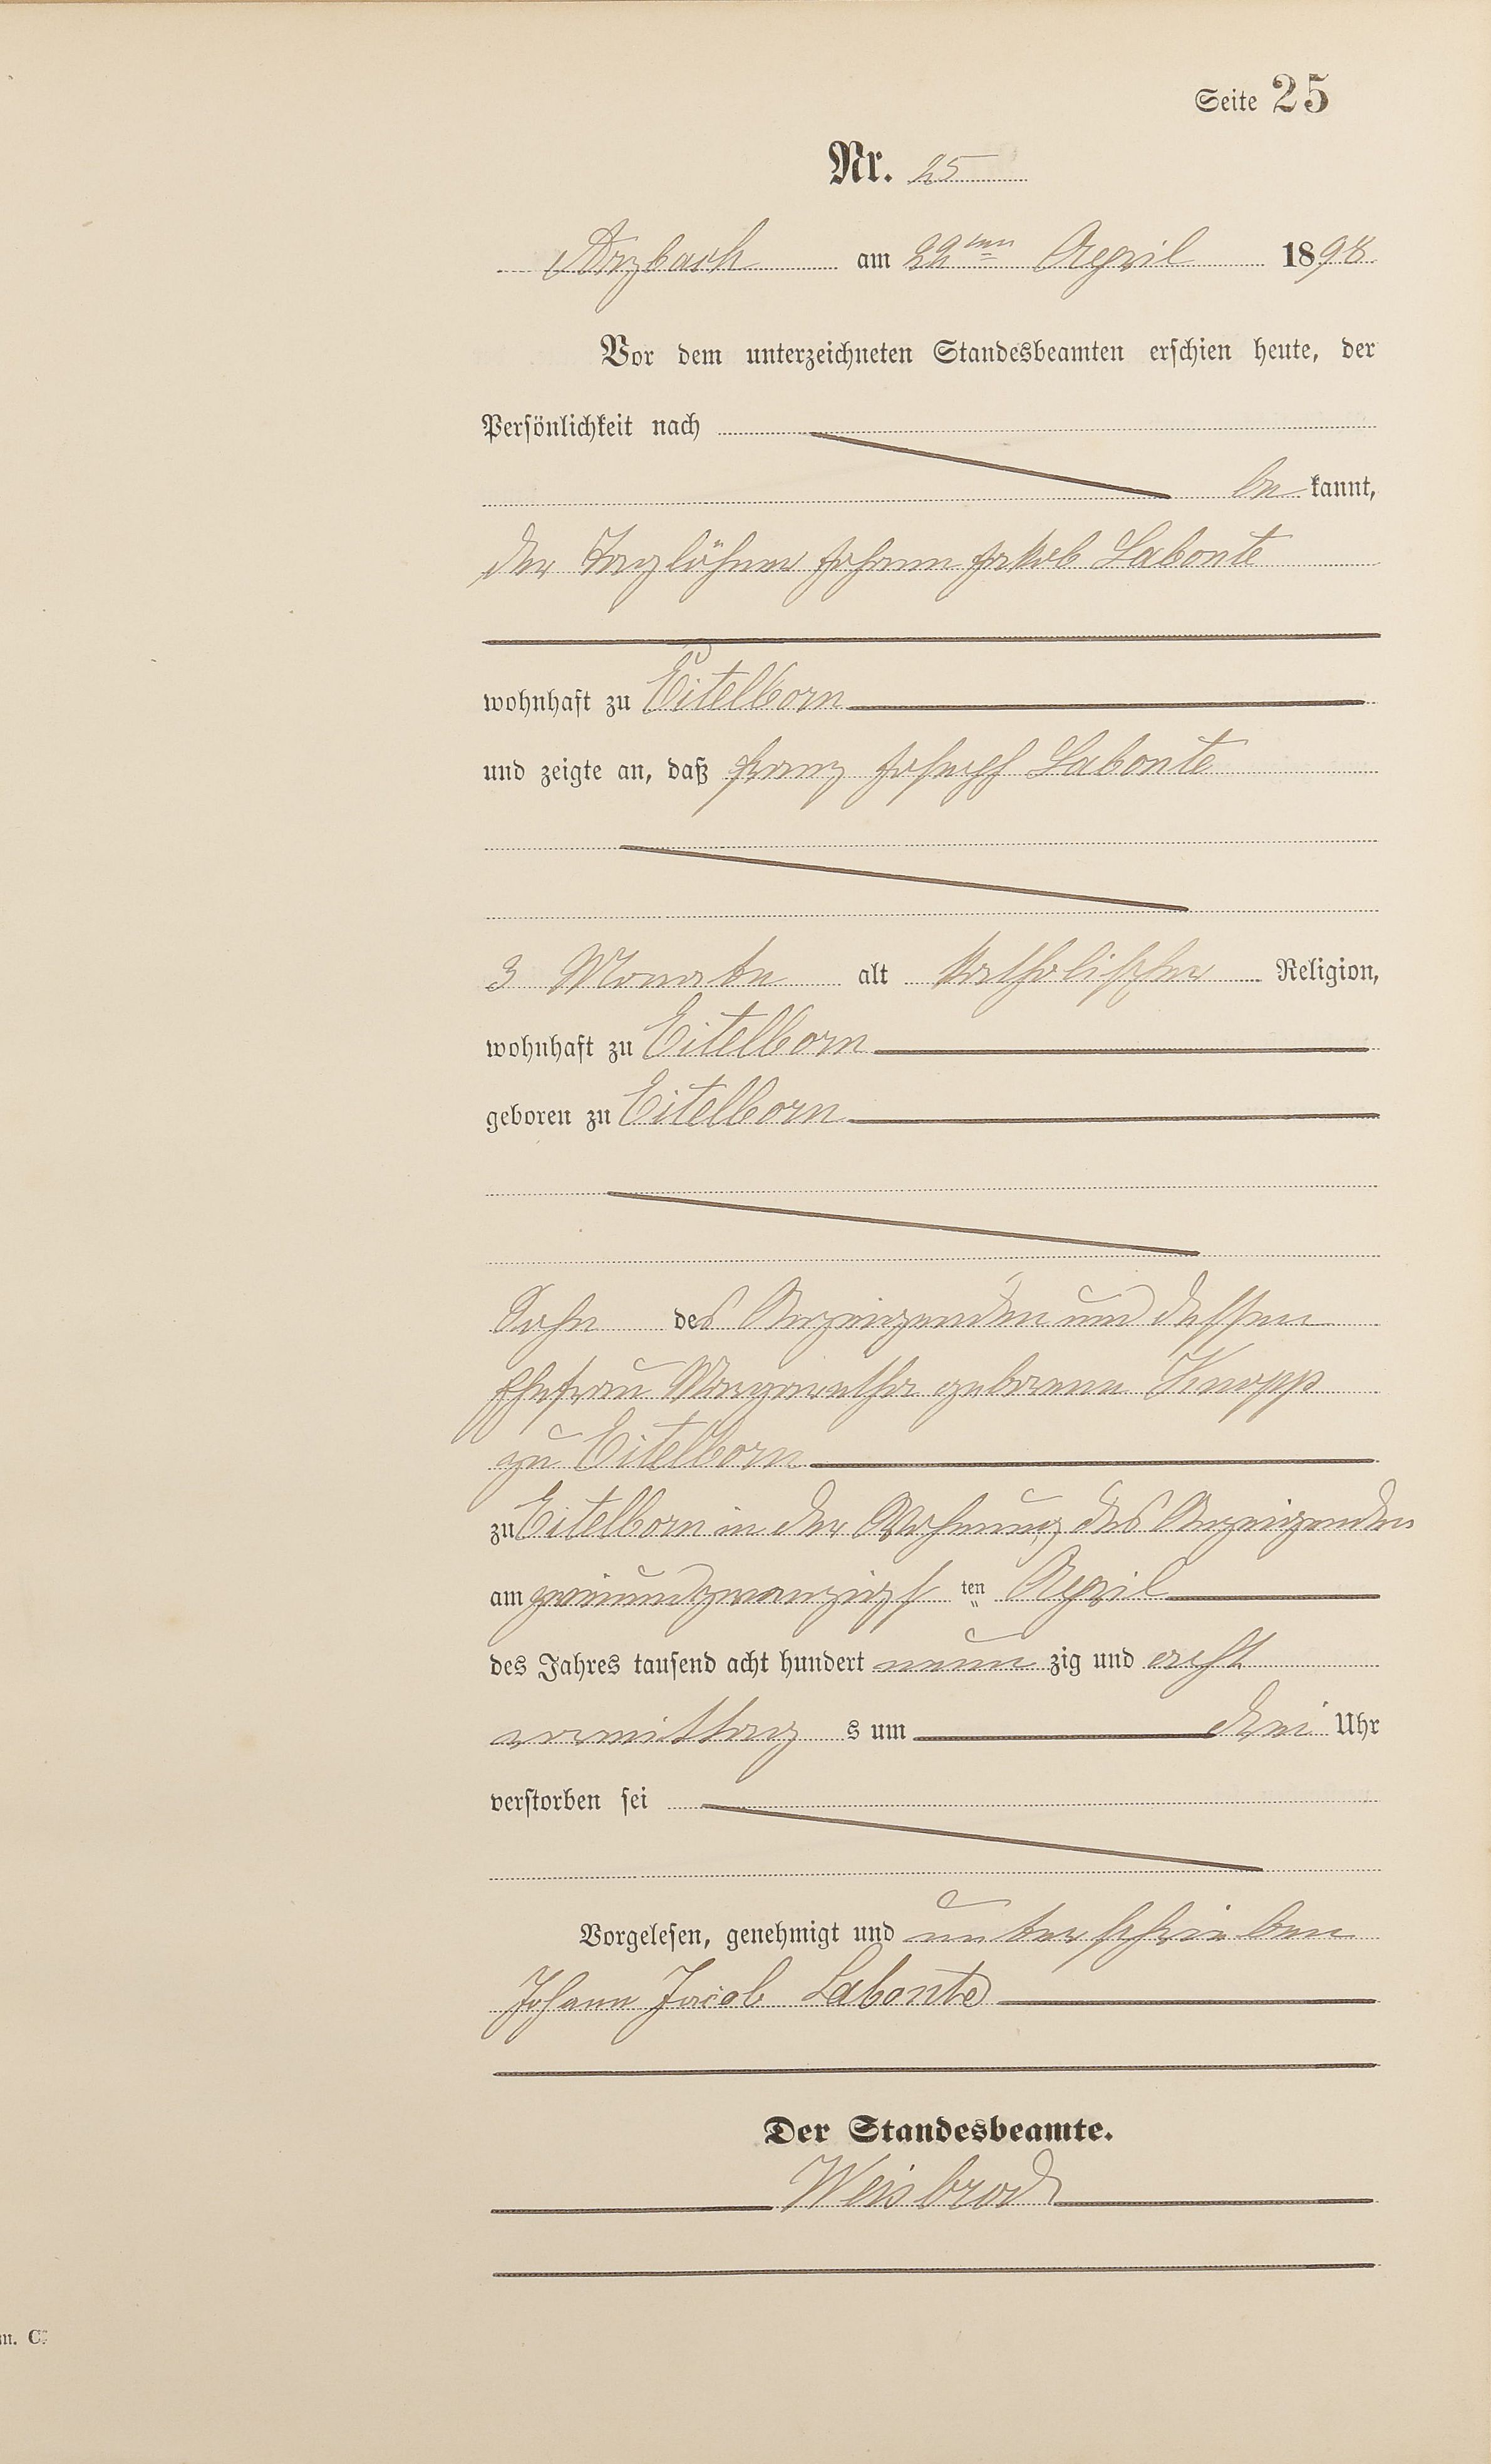 Seite 25
Nr. 25
Arzbach am 22ten April 1898
Vor dem unterzeichneten Standesbeamten erschien heute, der
Persönlichkeit nach
be kannt,
der Taglöhner Johann Jakob Labonte
wohnhaft zu Eitelborn
und zeigte an, daß Franz Joseph Labonte
3 Monate alt katholischer Religion,
wohnhaft zu Eitelborn
geboren zu Eitelborn
Sohn des Anzeigenden und dessen
Ehefrau Margaretha geborene Knopp
zu Eitelborn
zu Eitelborn in der Wohnung des Anzeigenden
am zweiundzwanzigs ten April
des Jahres tausend acht hundert neun zig und acht
vormittag s um drei Uhr
verstorben sei
Vorgelesen, genehmigt und unterschrieben
Johann Jacob Labonte
Der Standesbeamte.
Weisbrod
m. C.